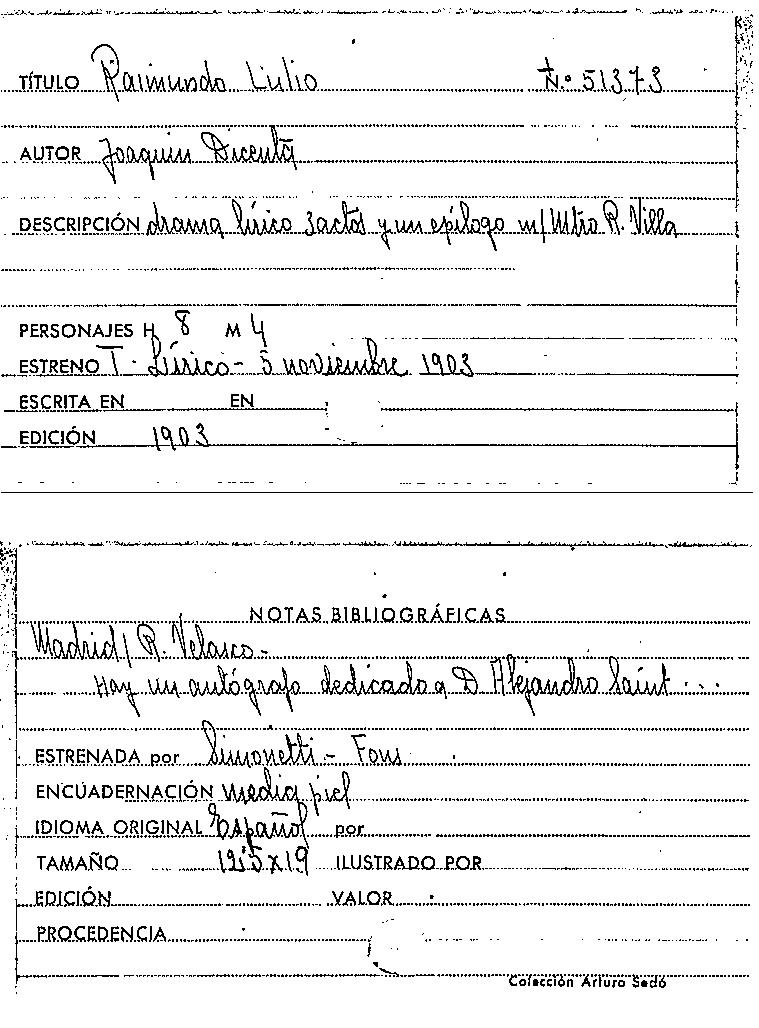 TÍTULO Raimundo Lulio N.º 51373
AUTOR Joaquin Dicenta
DESCRIPCIÓN drama lírico 3 actos y un epílogo m/ Mtro R. Villa
PERSONAJES H 8 M 4
ESTRENO T. Lírico - 5 noviembre 1903
ESCRITA EN EN
EDICIÓN 1903
NOTAS BIBLIOGRÁFICAS
Madrid / R. Velasco -
Hay un autógrafo dedicado a D Alejandro Saint ...
ESTRENADA por Simonetti - Fons
ENCUADERNACIÓN media piel
IDIOMA ORIGINAL Español por
TAMAÑO 12'5 x 19 ILUSTRADO POR
EDICIÓN VALOR
PROCEDENCIA
Colección Arturo Sedó